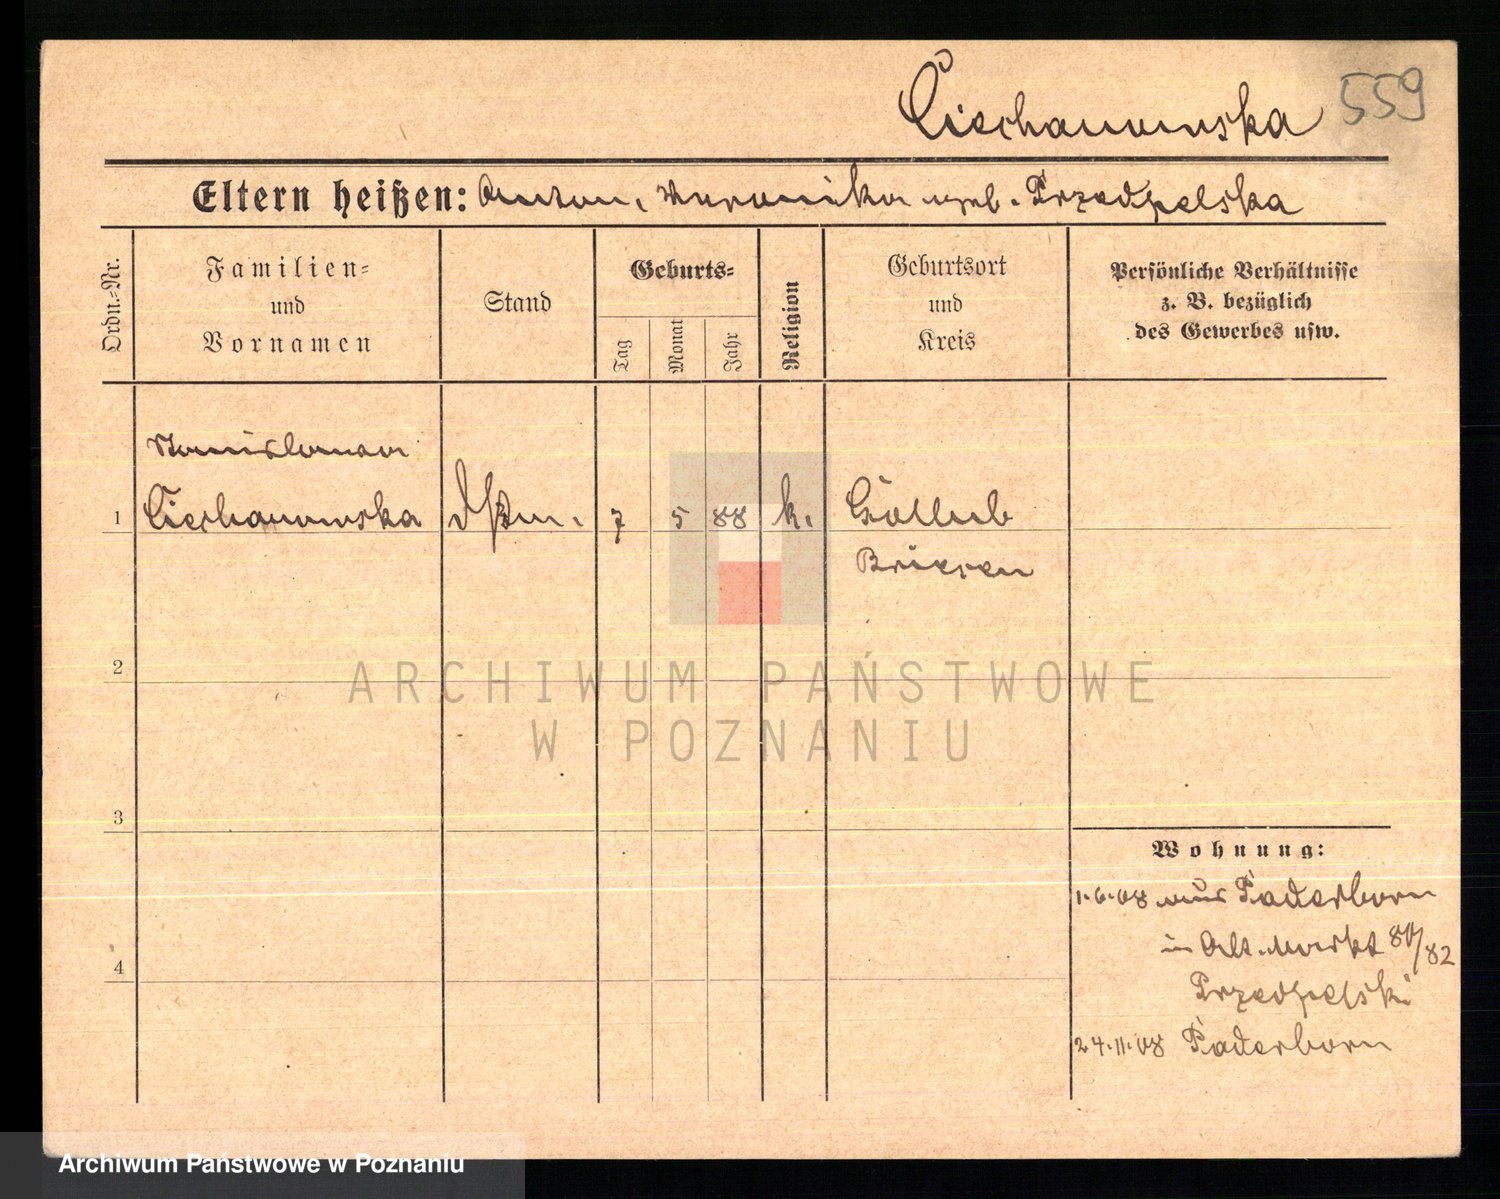 Ciechanowska 559
Eltern heißen: Anton, Veronika geb. Przedpelska
Ordn.-Nr.
Familien-
und
Vornamen
Stand
Geburts-
Tag
Monat
Jahr
Religion
Geburtsort
und
Kreis
Persönliche Verhältnisse
z. B. bezüglich
des Gewerbes usw.
Stanislawa
1 Ciechanowska 7 5 88 k. Gollub
Briesen
2
ARCHIWUM PAŃSTWOWE
W POZNANIU
3
Wohnung:
1.6.08 aus Paderborn
in Alt. Markt 80/82
Przedpelski
4
24.11.08 Paderborn
Archiwum Państwowe w Poznaniu